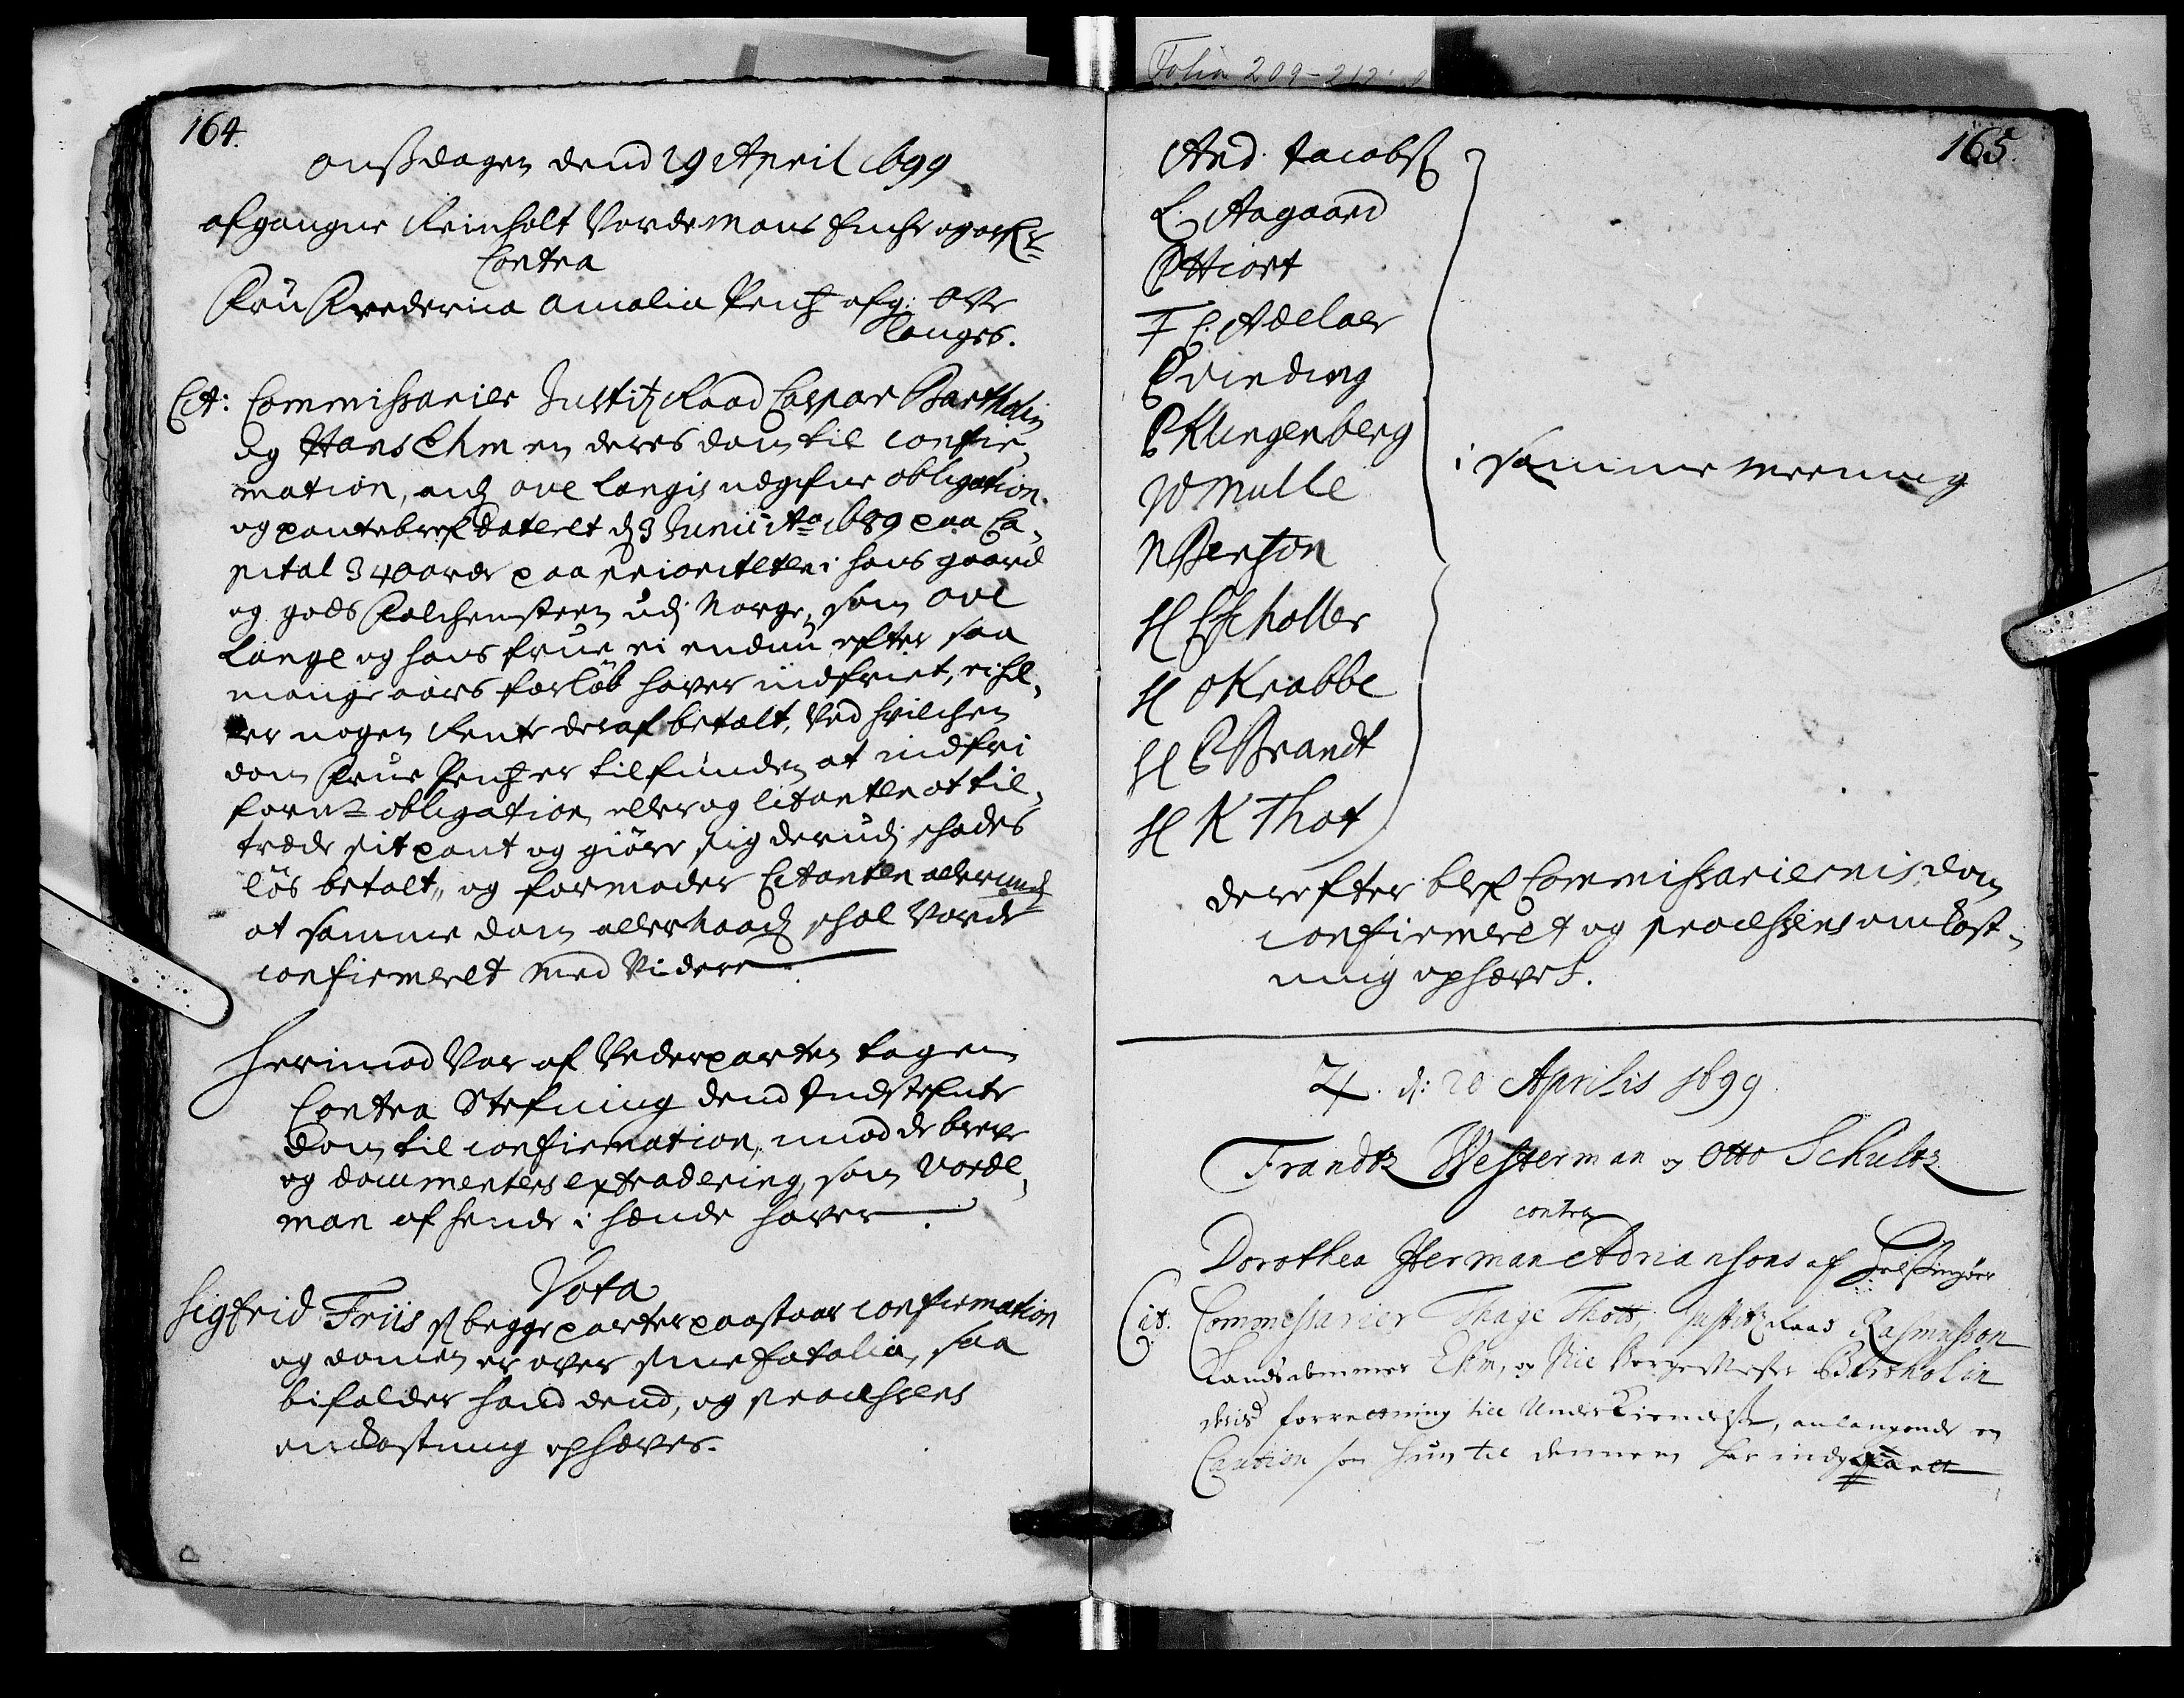 Folia 209-212
164.
onßdagen dend 19 April 1699
afgangne Reinholt Vordemans Enche og arf:
Contra
Fru Frederica Amalia Pench afg: Ove
Langes.
Cit: Commissarier Justitz Raad Caspar Bartholin
og Hans Ehm en deres dom til confir,
mation, ang Ove Langis udgifne obligation.
og pantebref Daterit d 3 Junii Ao 1689 paa Ca,
pital 340 paa prioriteten i hans gaard
og gods Falchensteen udj Norge, som Ove
Lange og hans frue ei endnu efter saa
mange aars forløb haver indfriet, ei hel,
ler nogen Rente deraf betalt, Ved hvilchen
dom Frue Pench er tilfunden at indfri
forne obligation, eller og Citanten at til,
træde sit pant og giøre sig derudj schades
løs betalt, og formoder Citanten allerund
at samme dom allernaad schal Vorde
confirmerit med Videre.
Herimod Var af Vederparten tagen
Contra Stefning dend Indstefnte
dom til confirmation, imod de breve
og documenters extradering, som Vorde,
man af hende i hænde haver.
Vota
Sigfrid Friis st begge parter paastaar confirmation
og domen er over sine fatalia, saa
bifalder hand dend, og processens
omkostning ophæves.
165.
And. Jacobs
L. Aagaard
P Hiort
F C. Adelaer
P vinding
P Klingenberg
W Mulle
N Benzon
i samme meening
H C Scholler
H O Krabbe
H C Brandt
H K Thot
derefter blef Commissariernis dom
confirmerit og processens omkost,
ning ophævet.
4. d: 20 Aprilis 1699.
Frandtz Westerman og Otto Schultz
contra
Dorothea Herman Adriansons af Helsingøer
Cit. Commissarier Thage Thott, Justitz Raad Rasmusson
Landsdommer Ehm, og Vice Borgemester Bartholin
deris forretning till Underkiendelse, anlangende en
Caution som hun til dennem har indgaaett